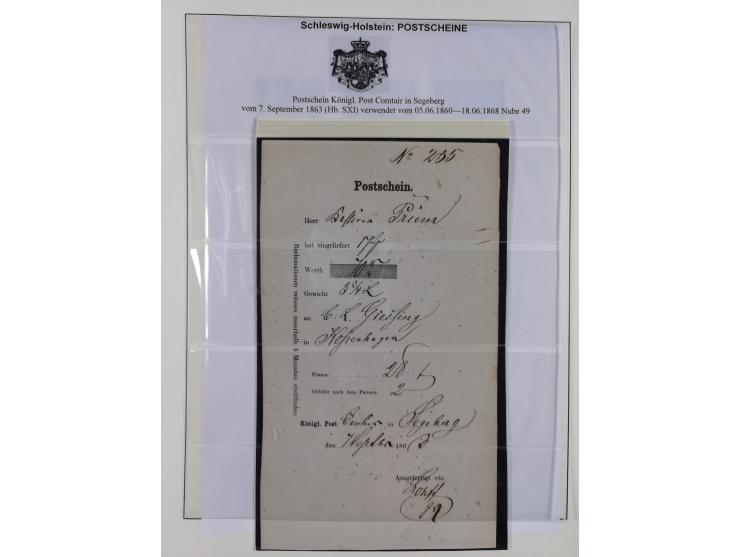 Schleswig-Holstein: POSTSCHEINE
Postschein Königl. Post Comtair in Segeberg
vom 7. September 1863 (Hb. SXI) verwendet vom 05.06.1860—18.06.1868 Nube 49
No 235
Postschein.
Herr Priem
hat eingeliefert
Werth
Gewicht 3 3/4 L
an C. L. Giessing
in Kopenhagen
Franco
Gebühr nach dem Patente 2
Königl. Post Comtair in Segeberg
den 7 Septbr 1863
Ausgefertigt von
Reclamationen müssen innerhalb 3 Monaten stattfinden.